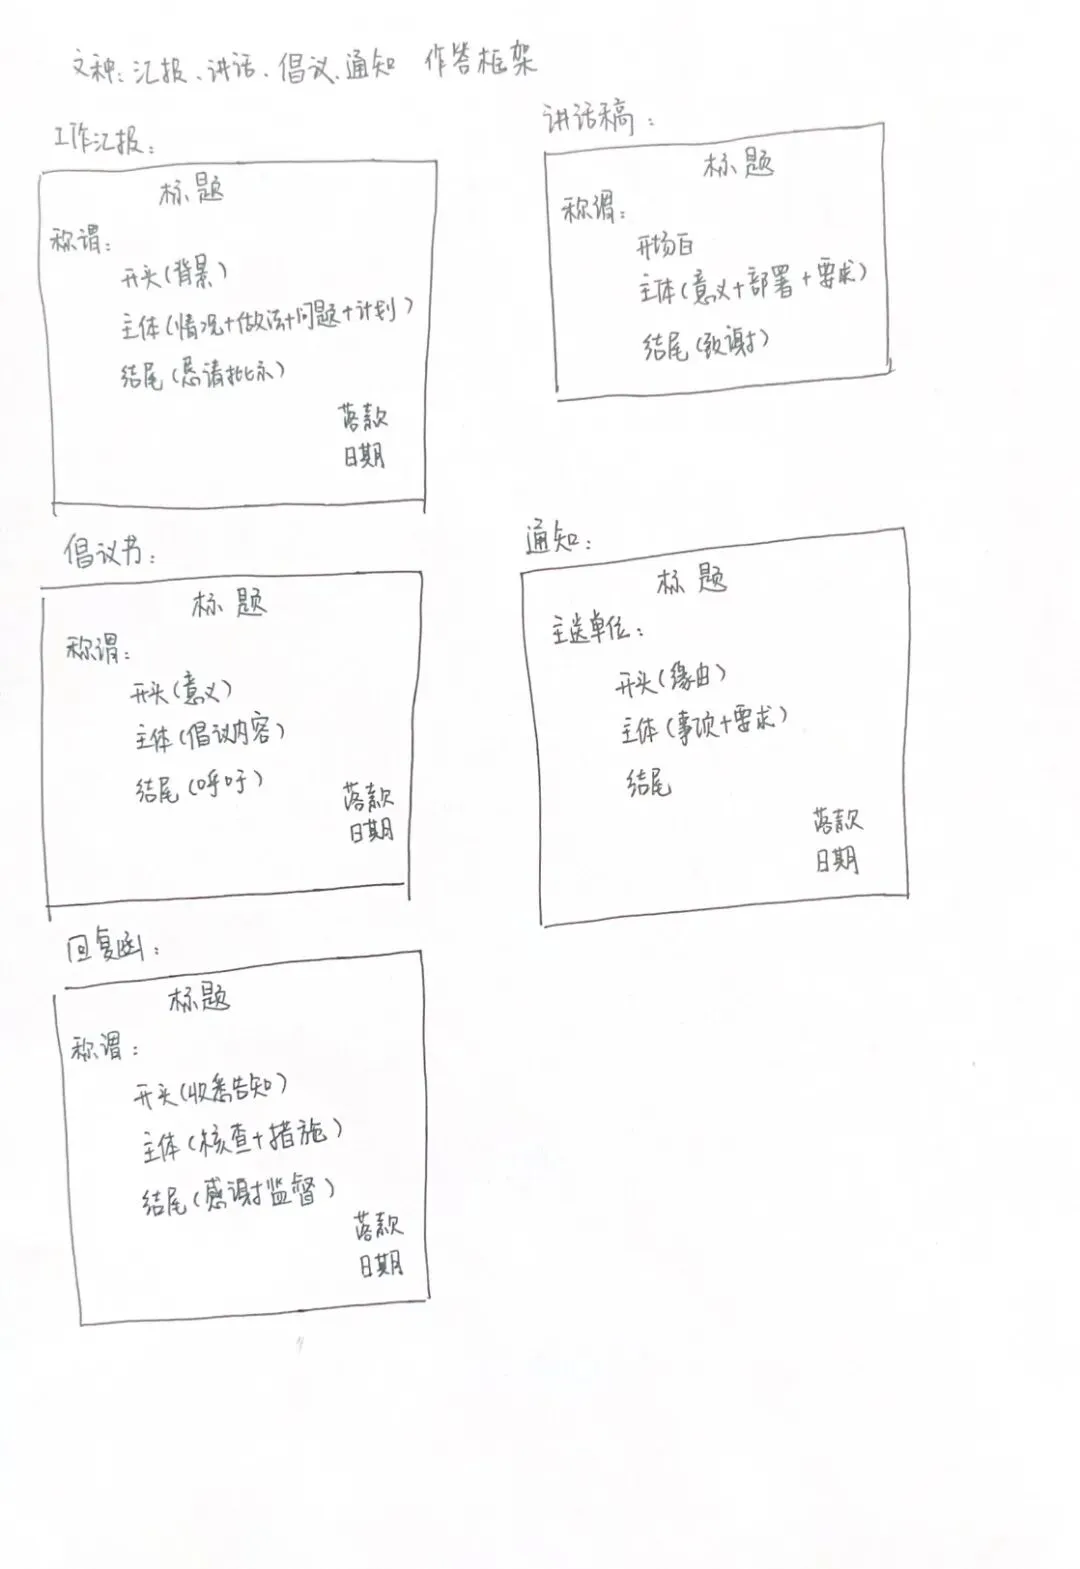 文种：汇报、讲话、倡议、通知 作答框架
工作汇报：
标题
称谓：
开头(背景)
主体(情况+做法+问题+计划)
结尾(恳请批示)
落款
日期
讲话稿：
标题
称谓：
开场白
主体(意义+部署+要求)
结尾(致谢)
倡议书：
标题
称谓：
开头(意义)
主体(倡议内容)
结尾(呼吁)
落款
日期
通知：
标题
主送单位：
开头(缘由)
主体(事项+要求)
结尾
落款
日期
回复函：
标题
称谓：
开头(收悉告知)
主体(核查+措施)
结尾(感谢监督)
落款
日期